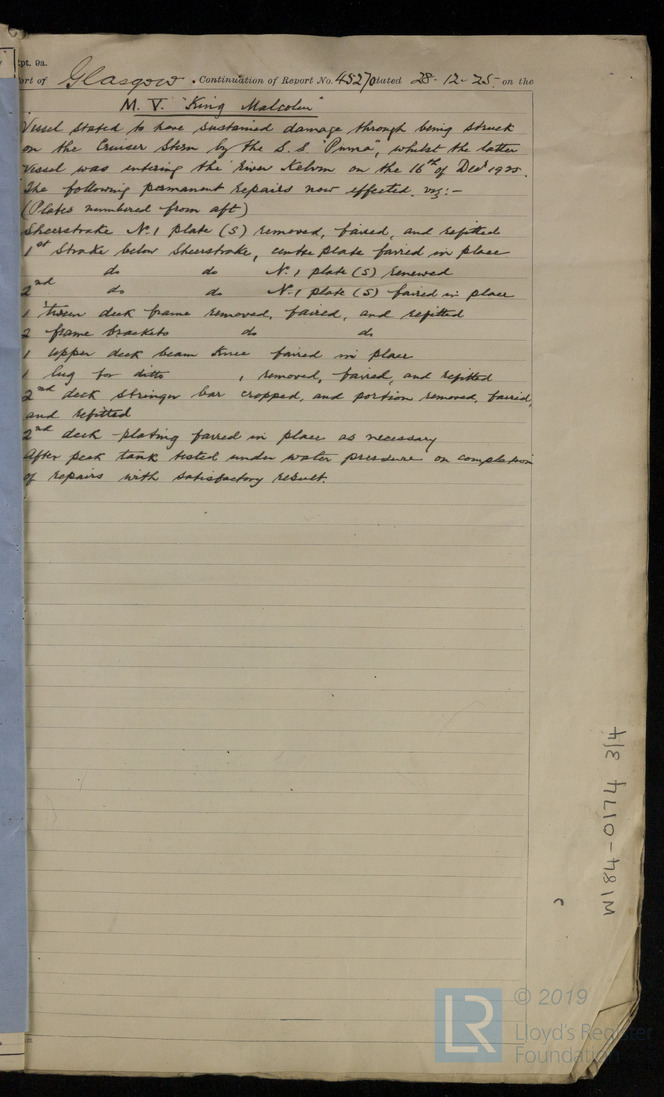 Rpt. 9a.
Port of Glasgow. Continuation of Report No. 45270 dated 28-12-25 on the
M. V. "King Malcolm"
Vessel stated to have sustained damage through being struck
on the Cruiser Stern by the S.S "Puma", whilst the latter
vessel was entering the River Kelvin on the 16th of Decr 1925.
The following permanent repairs now effected. viz:-
(Plates numbered from aft)
Sheerstrake No.1 plate (S) removed, faired, and refitted
1st Strake below Sheerstrake, centre plate faired in place
do do No.1 plate (S) renewed
2nd do do No.1 plate (S) faired in place
1 'tween deck frame removed, faired, and refitted
2 frame brackets do do
1 upper deck beam knee faired in place
1 lug for ditto , removed, faired, and refitted
2nd deck stringer bar cropped, and portion removed, faired,
and refitted
2nd deck plating faired in place as necessary
After peak tank tested under water pressure on completion
of repairs with satisfactory result.
M184-0174 3/4
LR
© 2019
Lloyd's Register
Foundation